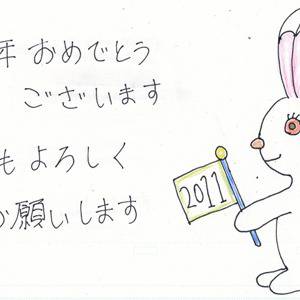 年 おめでとう
ございます
もよろしく
お願いします
2011